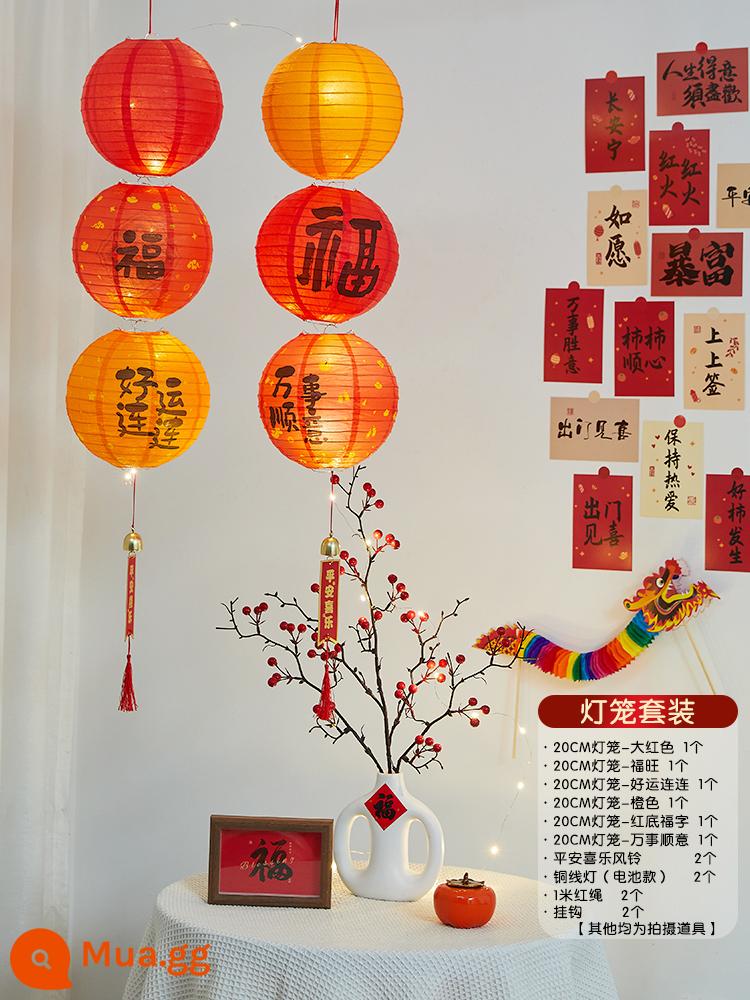 福
好运
连连
福
万事
顺意
平安喜乐
平安喜乐
人生得意
須盡歡
长安宁
红红
火火
平安
如愿
暴富
万事胜意
柿柿
顺心
上上签
出门见喜
保持热爱
出门
见喜
好柿发生
福
福
Blessing
灯笼套装
· 20CM灯笼-大红色 1个
· 20CM灯笼-福旺 1个
· 20CM灯笼-好运连连 1个
· 20CM灯笼-橙色 1个
· 20CM灯笼-红底福字 1个
· 20CM灯笼-万事顺意 1个
· 平安喜乐风铃 2个
· 铜线灯（电池款） 2个
· 1米红绳 2个
· 挂钩 2个
【其他均为拍摄道具】
Mua.gg